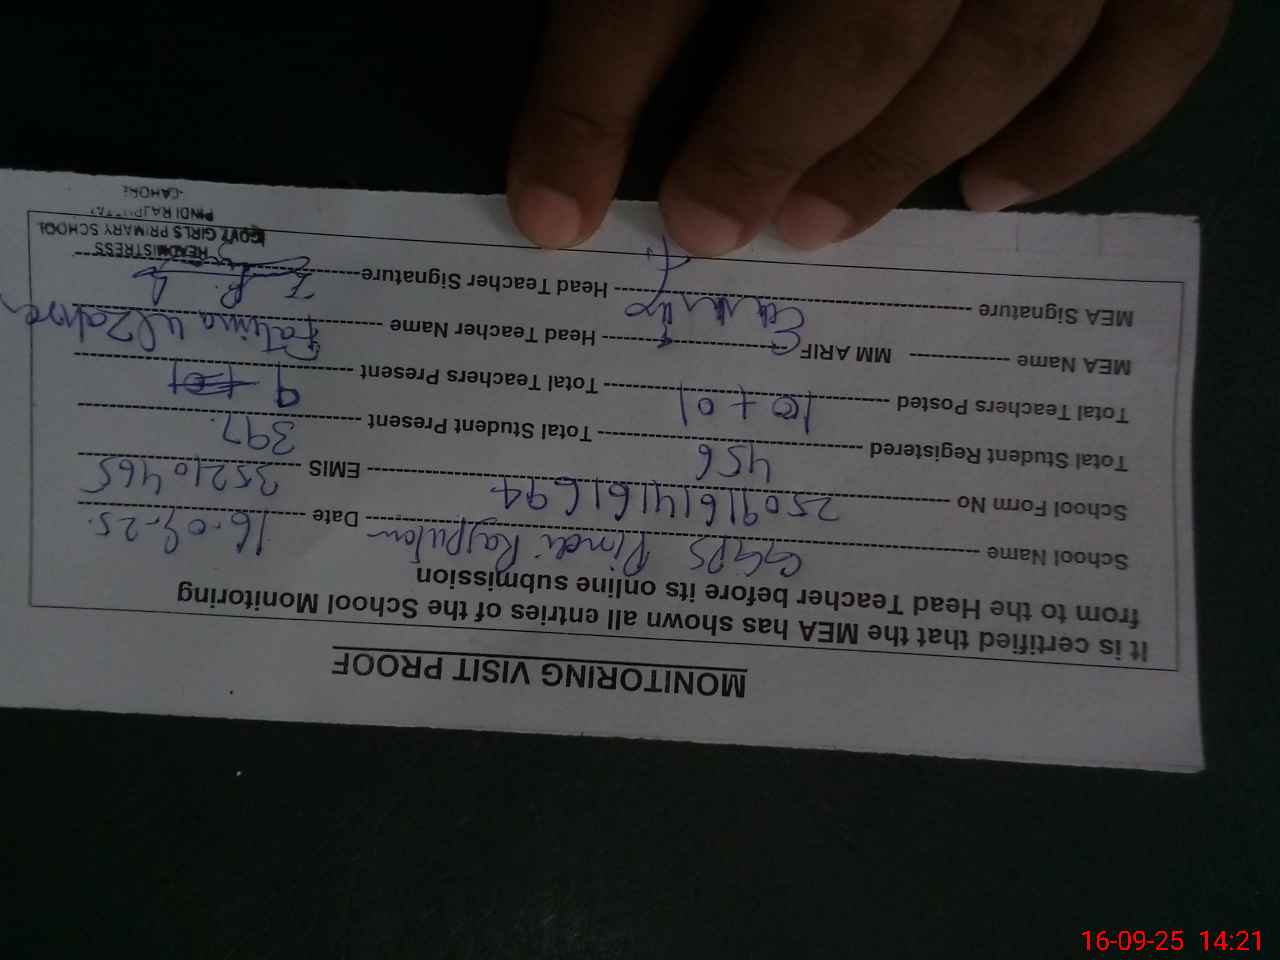 MONITORING VISIT PROOF
It is certified that the MEA has shown all entries of the School Monitoring
from to the Head Teacher before its online submission
School Name GGPS Pindi Rajputan Date 16-09-25.
School Form No 25091614161694 EMIS 35210465
Total Student Registered 456 Total Student Present 397.
Total Teachers Posted 10 + 01 Total Teachers Present 9
MEA Name MM ARIF Head Teacher Name Fatima ul Zahra
MEA Signature Head Teacher Signature
HEADMISTRESS
GOVT GIRLS PRIMARY SCHOOL
PINDI
LAHORE
16-09-25 14:21